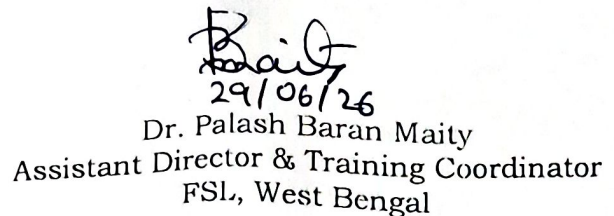 PBMaity
29/06/26
Dr. Palash Baran Maity
Assistant Director & Training Coordinator
FSL, West Bengal